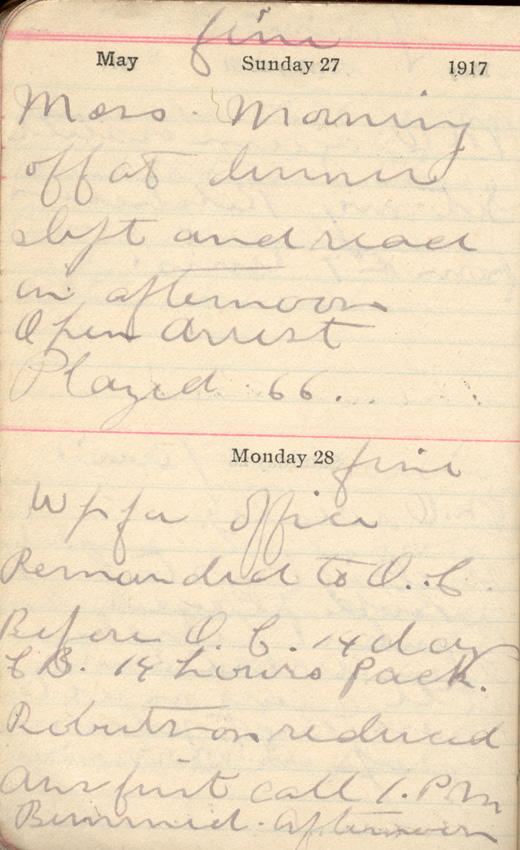 fine
May Sunday 27 1917
Mess. Morning
off at dinner
slept and read
in afternoon
Open arrest
Played 66.
Monday 28 fine
Up for office
Remanded to O.C.
Before O.C. 14 day
C B. 14 hours Pack.
Robertson reduced
Ans first call 1. P.M
Bummed. afternoon